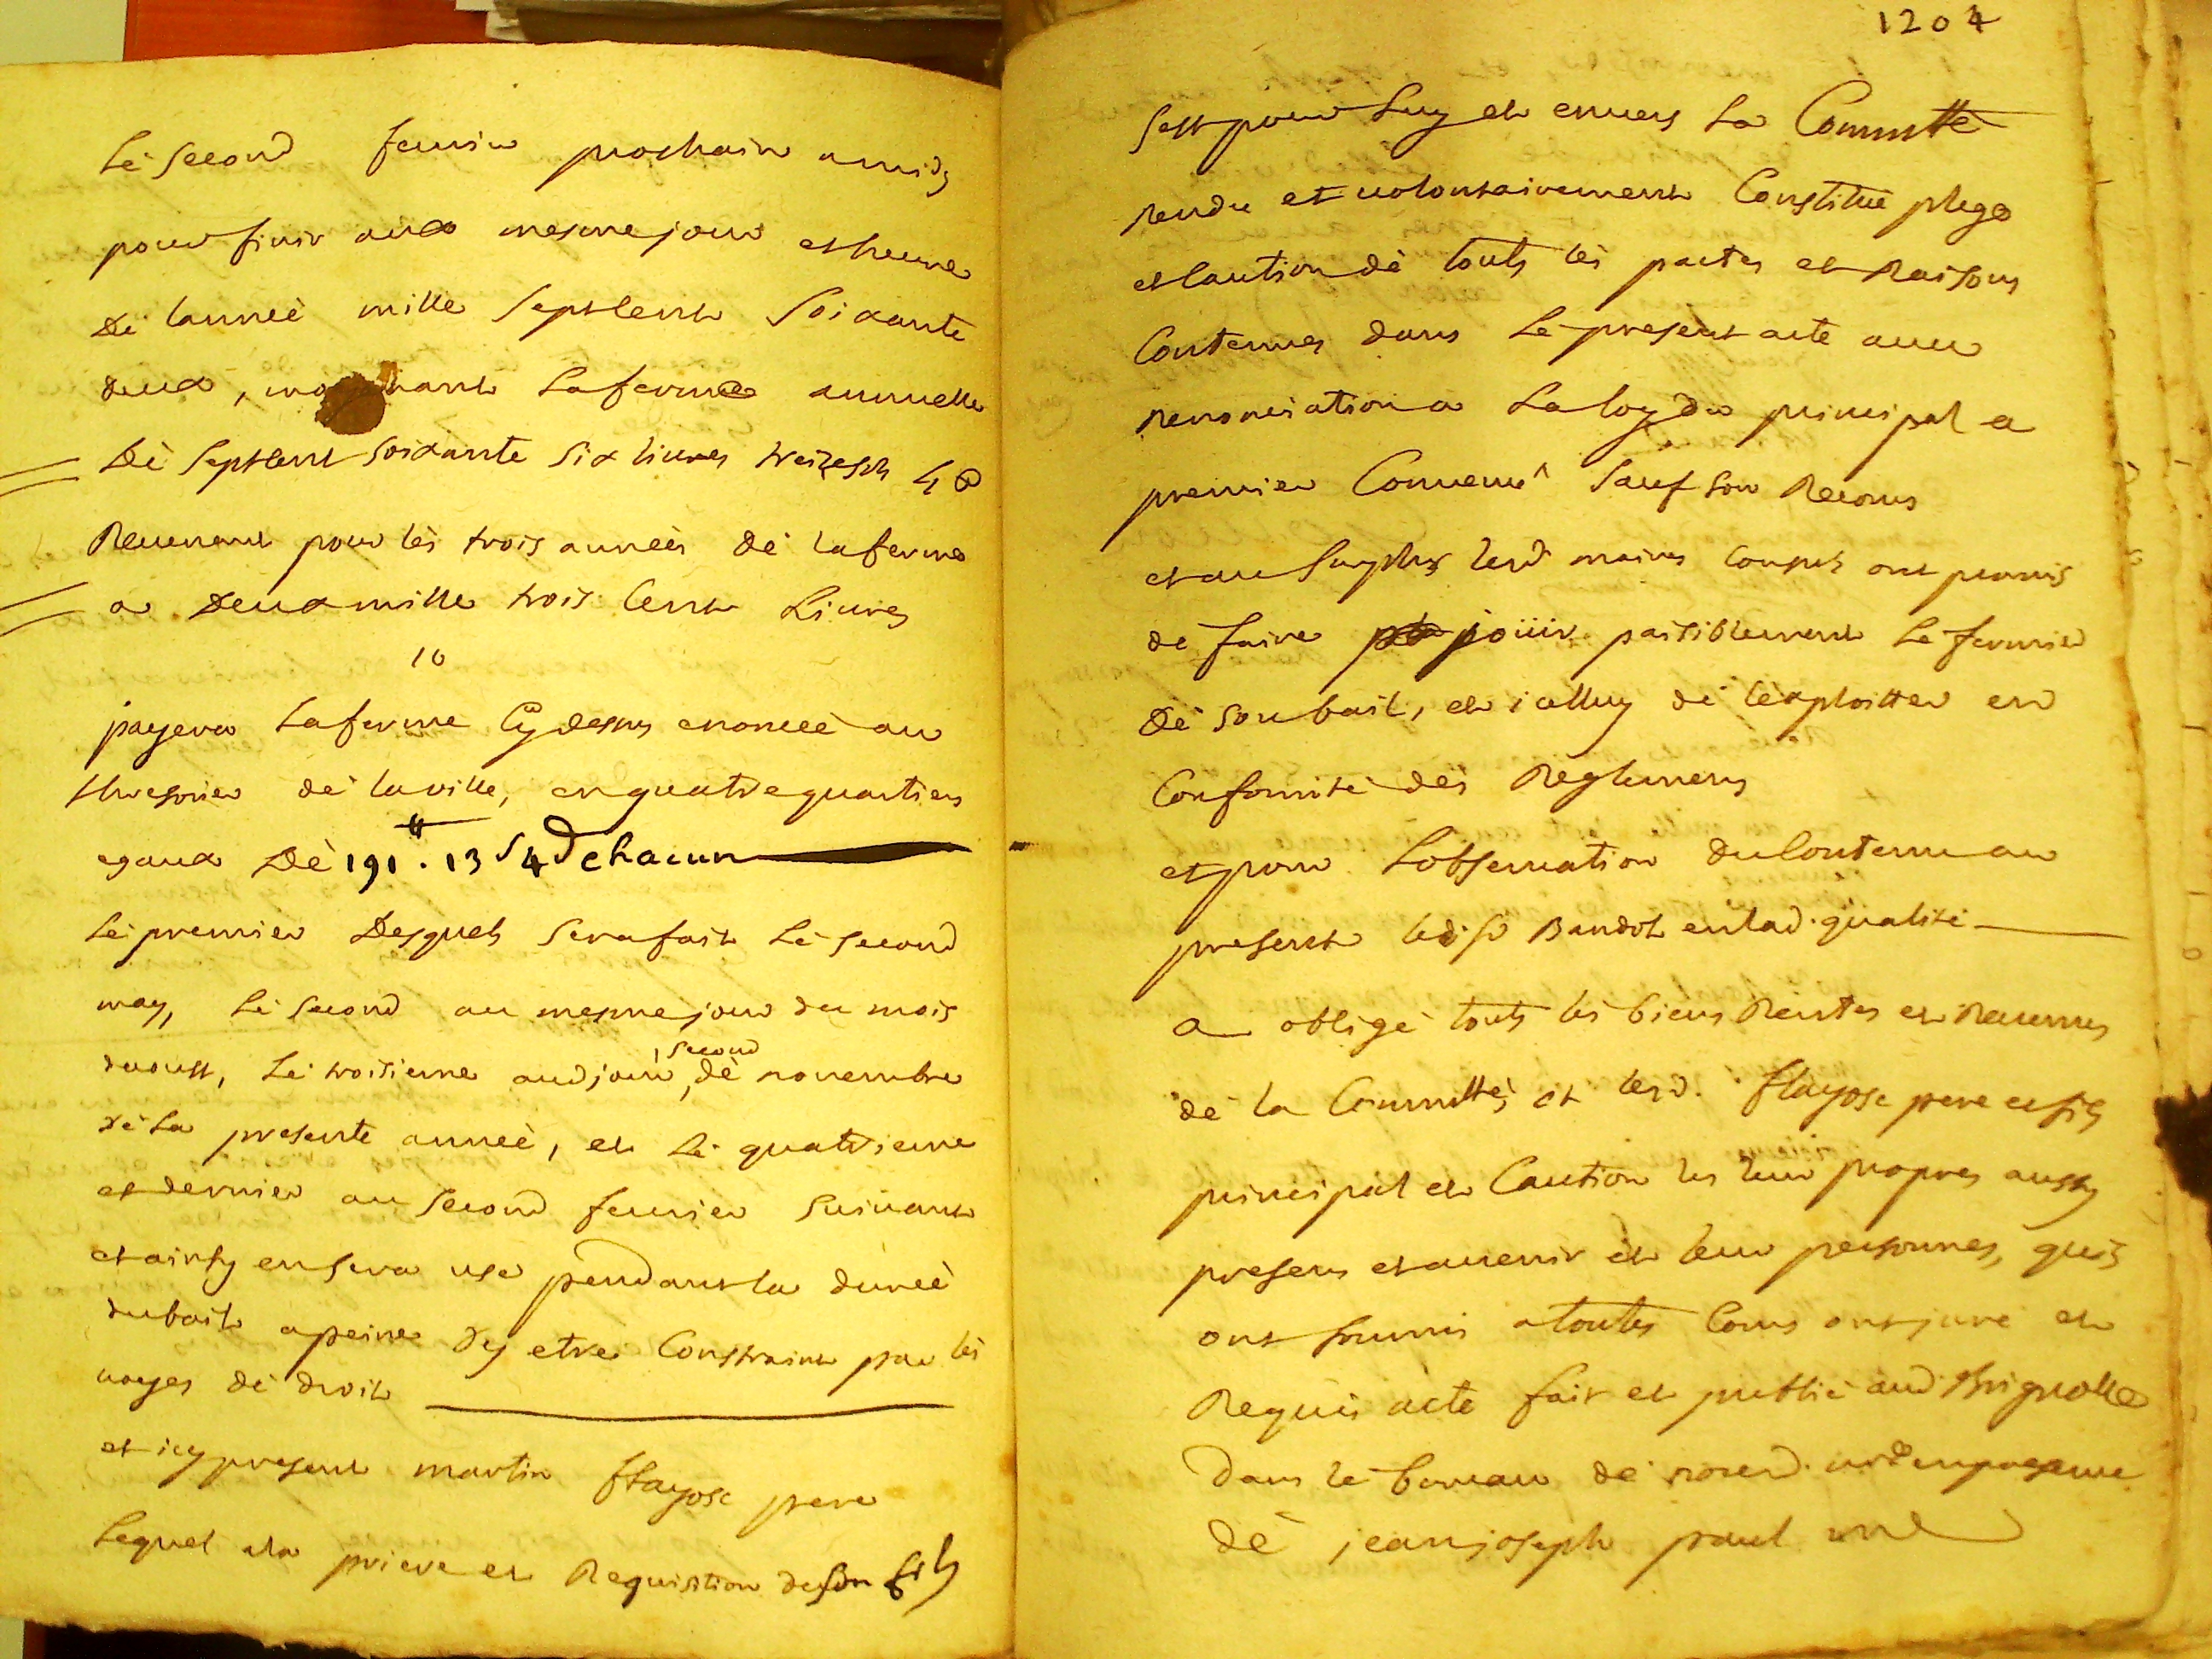 Le second feurier prochain a midy
pour finir aux mesme jour et heure
De lanneé mille sept cent soixante
deux, mo nant la ferme annuelle
De sept cent soixante six liures treize sols 4 d
Reuenant pour les trois anneés de la ferme
a Deux mille trois cent Liures
10
payera la ferme cy dessus enonceé au
thresorier de la ville, en quatre quartiers
egaux De 191 ℔. 13 s 4 d chacun
Le premier Desquels sera fait le second
may, Le second au mesme jour du mois
daoust, Le troisieme aud jour second de nouembre
de La presente anneé, et Le quatrieme
et dernier au second feurier suiuant
et ainsy en sera usé pendant la dureé
du bail a peine Dy etre Constraint par les
uoyes de droit
et icy present martin flayosc pere
Lequel a la priere et Requisition de son fils
1204
sest pour luy et enuers La Commtté
rendu et uolontairement Constitué plege
et Caution de touts les pactes et Raisons
Contenues dans Le present acte auec
renonciation a La loy du principal et
premier Conuenu sauf son Recours
et au surplus lesd maires consuls ont promis
de faire joüir paisiblement Le fermier
De son bail, et icelluy de lexploitter en
Conformité des Reglemens
et pour Lobseruation du Contenu au
present led sr Baudot en lad. qualité
a obligé touts les biens Rentes et Reuenus
de la Commtté, et lesd. flayosc pere et fils
principal et Caution les leur propres aussy
presens et auenir et leur personnes, quils
ont soumis a toutes Cours ont juré et
Requis acte fait et publié aud Brignolle
Dans le bureau de nousd. nore en presence
De jean joseph paul